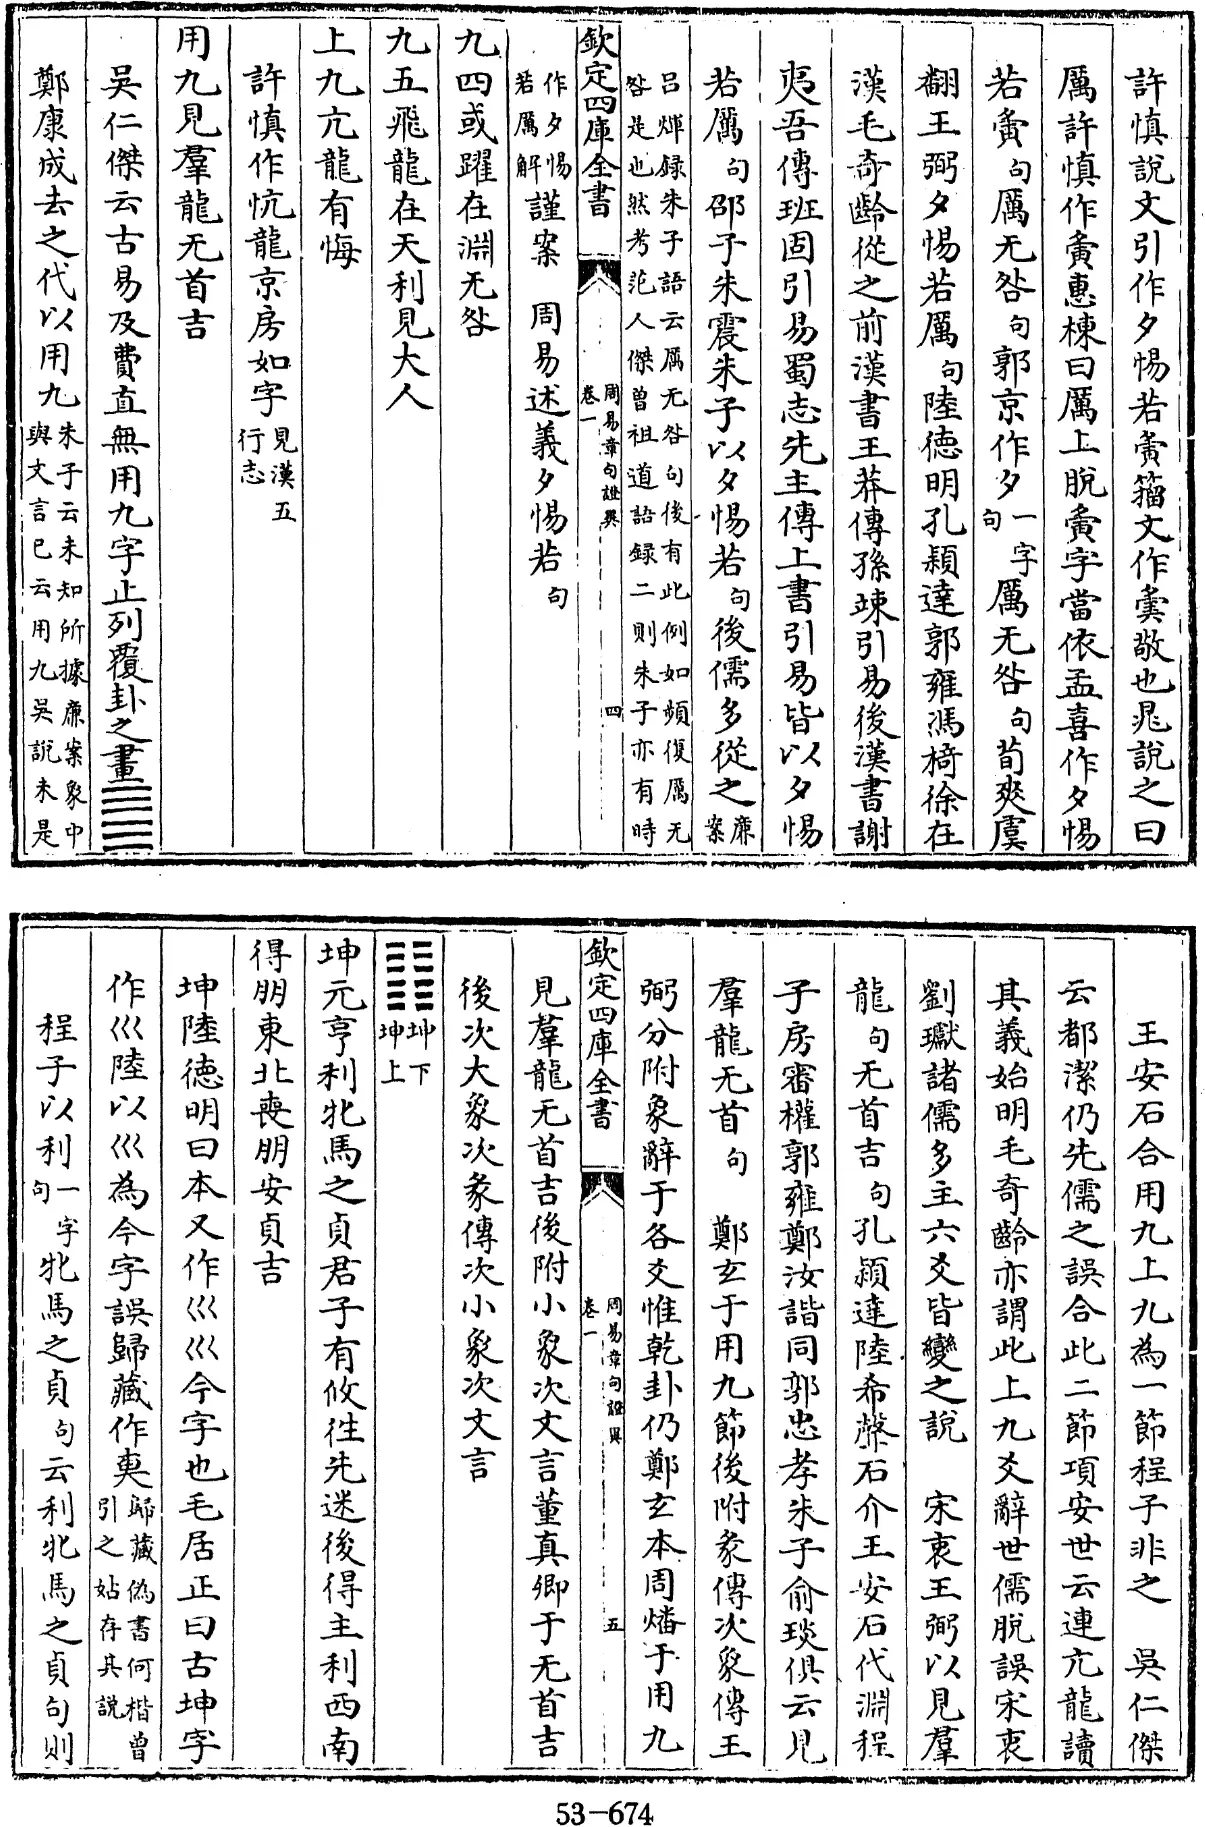 許慎說文引作夕惕若夤籀文作夤敬也晁說之曰
厲許慎作夤惠棟曰厲上脫夤字當依孟喜作夕惕
若夤句厲无咎句郭京作夕一字句厲无咎句荀爽虞
翻王弼夕惕若厲句陸德明孔穎達郭雍馮椅徐在
漢毛奇齡從之前漢書王莽傳孫竦引易後漢書謝
夷吾傳班固引易蜀志先主傳上書引易皆以夕惕
若厲句邵子朱震朱子以夕惕若句後儒多從之廉案
呂煇録朱子語云厲无咎句後有此例如頻復厲无
咎是也然考范人傑曾祖道語録二則朱子亦有時
欽定四庫全書 周易章句證異 卷一 四
作夕惕若厲解謹案 周易述義夕惕若句
九四或躍在淵无咎
九五飛龍在天利見大人
上九亢龍有悔
許慎作忼龍京房如字見漢五行志
用九見羣龍无首吉
吳仁傑云古易及費直無用九字止列覆卦之畫䷀
鄭康成去之代以用九朱子云未知所據廉案象中與文言已云用九吳說未是
王安石合用九上九為一節程子非之 吳仁傑
云都潔仍先儒之誤合此二節項安世云連亢龍讀
其義始明毛奇齡亦謂此上九爻辭世儒脫誤宋衷
劉瓛諸儒多主六爻皆變之說 宋衷王弼以見羣
龍句无首吉句孔穎達陸希聲石介王安石代淵程
子房審權郭雍鄭汝諧同郭忠孝朱子俞琰俱云見
羣龍无首句 鄭玄于用九節後附彖傳次象傳王
弼分附象辭于各爻惟乾卦仍鄭玄本周燔于用九
欽定四庫全書 周易章句證異 卷一 五
見羣龍无首吉後附小象次文言董真卿于无首吉
後次大象次彖傳次小象次文言
䷁坤下坤上
坤元亨利牝馬之貞君子有攸往先迷後得主利西南
得朋東北喪朋安貞吉
坤陸德明曰本又作巛巛今字也毛居正曰古坤字
作巛陸以巛為今字誤歸藏作𠀬歸藏偽書何楷曾引之姑存其説
程子以利一字句牝馬之貞句云利牝馬之貞句則
53-674